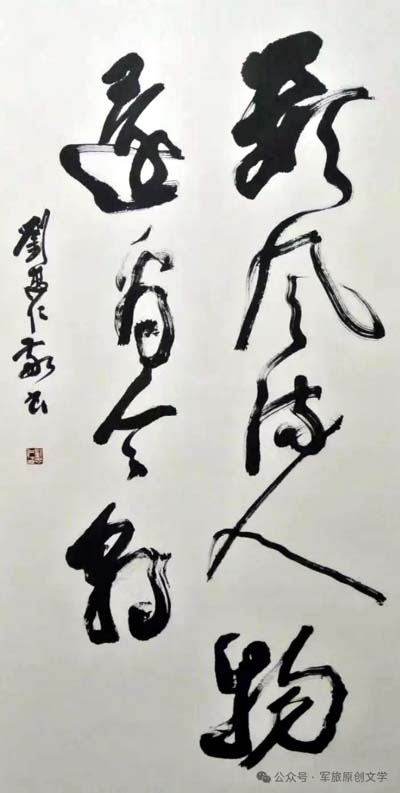 数风流人物
還看今朝
劉 仁敬书
公众号·军旅原创文学